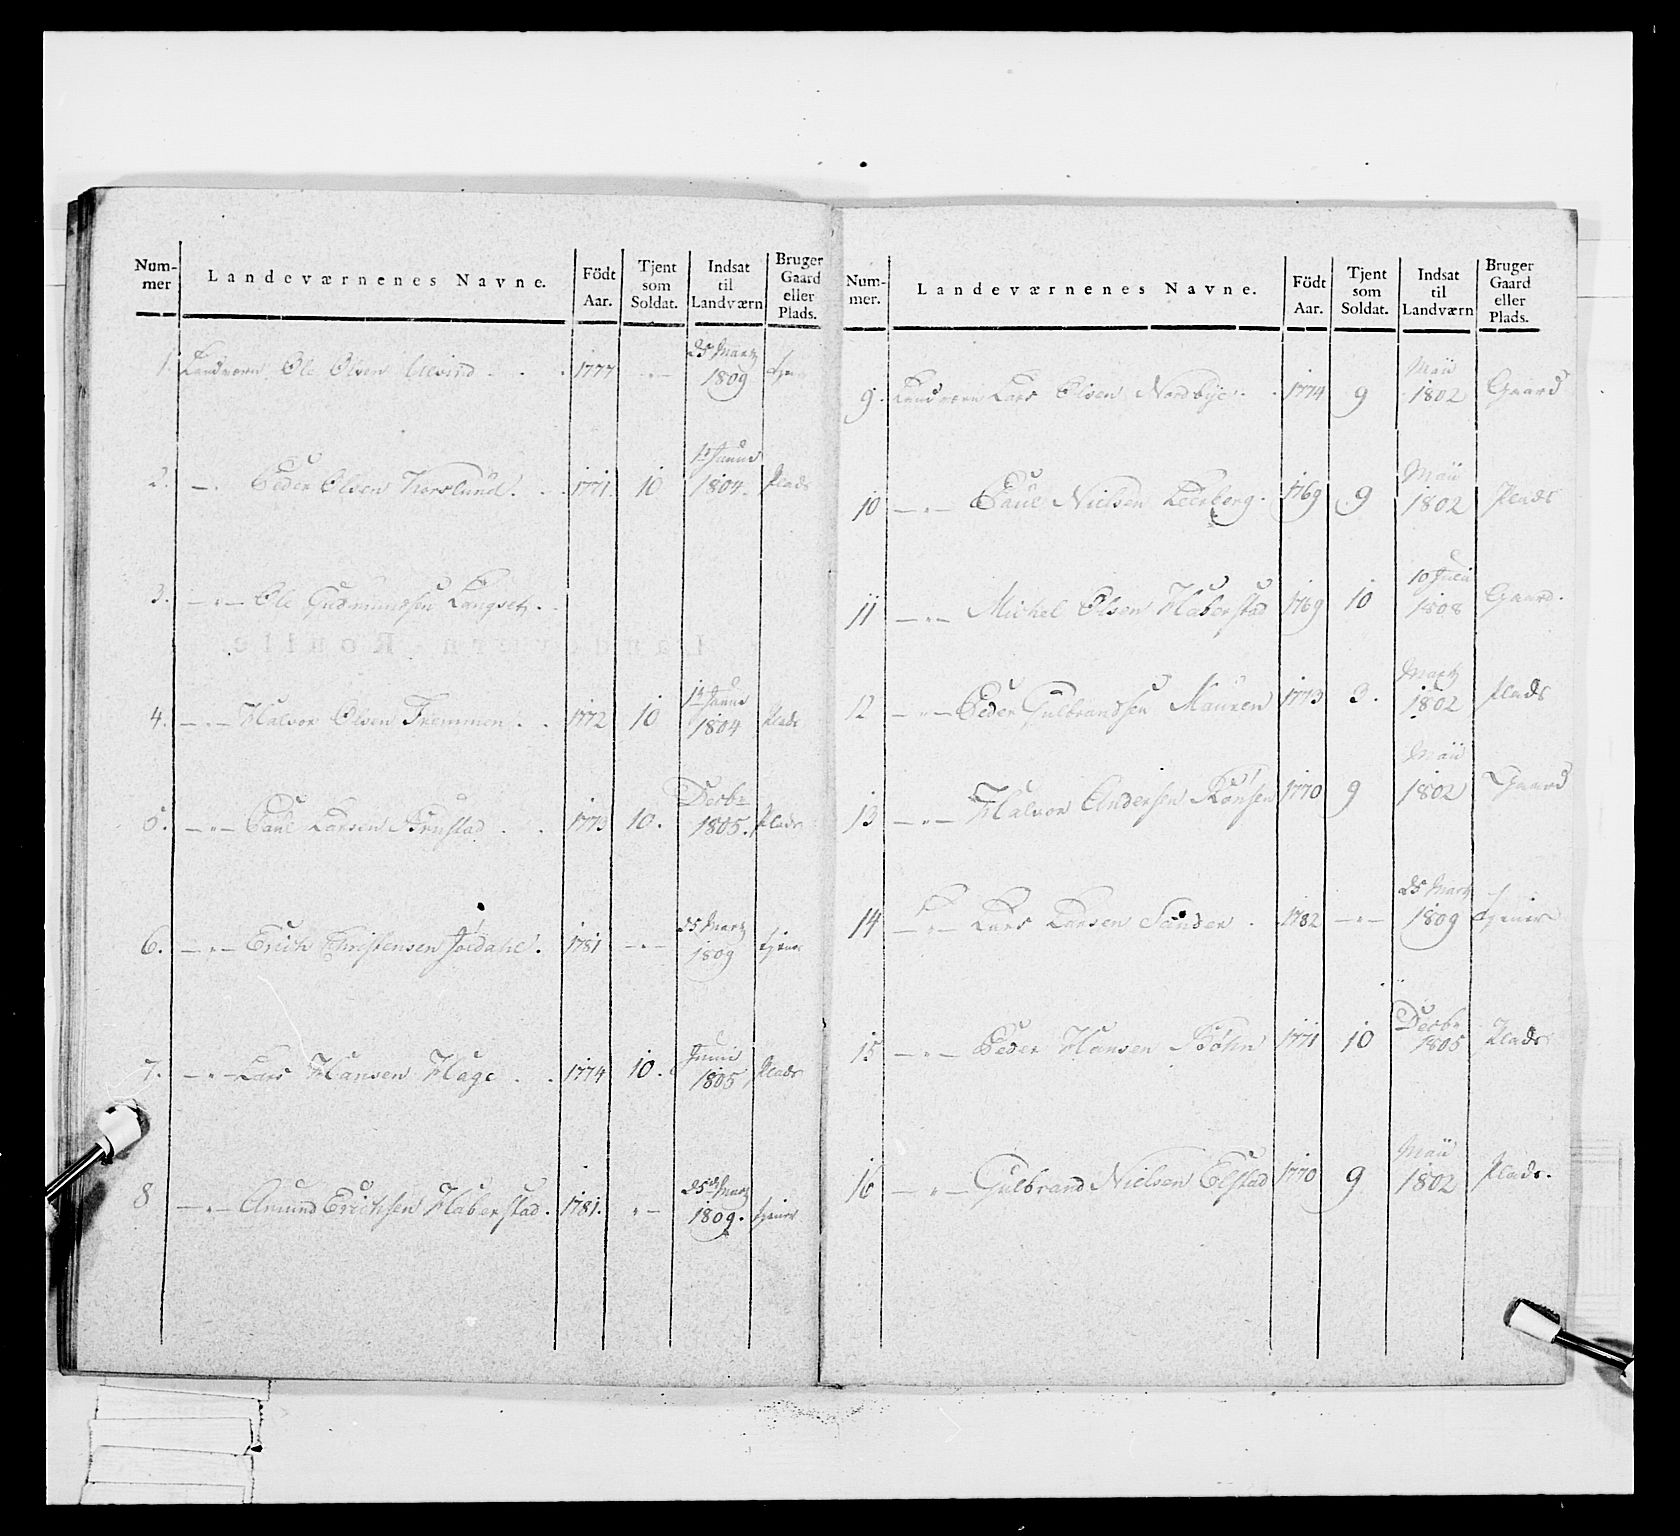 Num-
mer
Landeværnenes Navne.
Födt
Aar.
Tjent
som
Soldat.
Indsat
til
Landværn
Bruger
Gaard
eller
Plads.
1. Landværn Ole Olsen 1777 -"- 25 Martz 1809 tjener
2. -"- Peder Olsen Korslund. 1771. 10 1te Junii 1804. Plads
3. -"- Ole Gudmundsen Langset.
4. -"- Halvor Olsen Fremmen. 1772 10 1te Junii 1804 Plads
5. -"- Paul Larsen Arnstad 1773 10. Decbr 1805. Plads
6. -"- Erich Christensen Joedahl. 1781 -"- 25 Martz 1809 tjener
7. -"- Lars Hansen Hage 1774 10. Junii 1805 Plads
8 -"- Amund Erichsen Haberstad. 1781. "- 25de Martz 1809. tjener
Num-
mer.
Landeværnenes Navne.
Födt
Aar.
Tjent
som
Soldat.
Indsat
til
Landværn
Bruger
Gaard
eller
Plads.
9. Landværn Lars Olsen Nordbye. 1774 9 Maii 1802 Gaard
10 -"- Paul Nielsen Leerberg. 1769 9 Maii 1802 Plads
11 -"- Michel Olsen Haberstad 1769 10 10 Julii 1808 Gaard.
12 -"- Peder Gulbrandsen Mauren 1773 3. Martz 1802 Plads
13 -"- Halvor Andersen Rønsen 1770 9 Maii 1802 Gaard
14 -"- Lars Larsen Sander. 1782 -"- 25 Martz 1809 tjener
15 -"- Peder Hansen Bøhn 1771 10 Decbr 1805 Plads
16 -"- Gulbrand Nielsen Elstad 1770 9 Maii 1802 Plads.